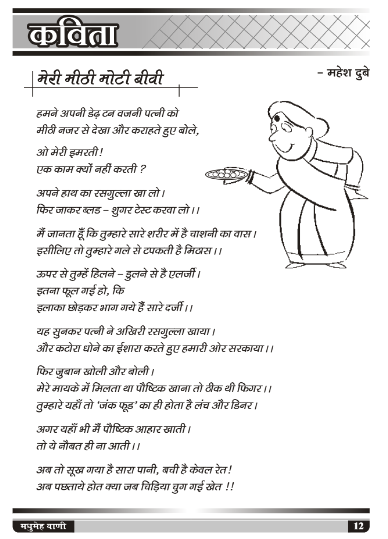 कविता
मेरी मीठी मोटी बीवी
– महेश दुबे
हमने अपनी डेढ़ टन वजनी पत्नी को
मीठी नजर से देखा और कराहते हुए बोले,
ओ मेरी इमरती !
एक काम क्यों नहीं करती ?
अपने हाथ का रसगुल्ला खा लो ।
फिर जाकर ब्लड – शुगर टेस्ट करवा लो ।।
मैं जानता हूँ कि तुम्हारे सारे शरीर में है चाशनी का वास ।
इसीलिए तो तुम्हारे गले से टपकती है मिठास ।।
ऊपर से तुम्हें हिलने – डुलने से है एलर्जी ।
इतना फूल गई हो, कि
इलाका छोड़कर भाग गये हैं सारे दर्जी ।।
यह सुनकर पत्नी ने अखिरी रसगुल्ला खाया ।
और कटोरा धोने का ईशारा करते हुए हमारी ओर सरकाया ।।
फिर जुबान खोली और बोली ।
मेरे मायके में मिलता था पौष्टिक खाना तो ठीक थी फिगर ।।
तुम्हारे यहाँ तो 'जंक फूड' का ही होता है लंच और डिनर ।
अगर यहाँ भी मैं पौष्टिक आहार खाती ।
तो ये नौबत ही ना आती ।।
अब तो सूख गया है सारा पानी, बची है केवल रेत !
अब पछताये होत क्या जब चिड़िया चुग गई खेत !!
मधुमेह वाणी
12